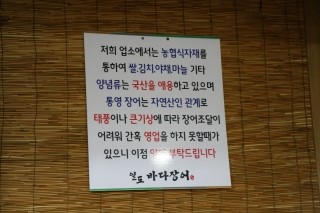 저희 업소에서는 농협식자재를
통하여 쌀.김치.야채.마늘 기타
양념류는 국산을 애용하고 있으며
통영 장어는 자연산인 관계로
태풍이나 큰기상에 따라 장어조달이
어려워 간혹 영업을 하지 못할때가
있으니 이점 부탁드립니다
바다장어